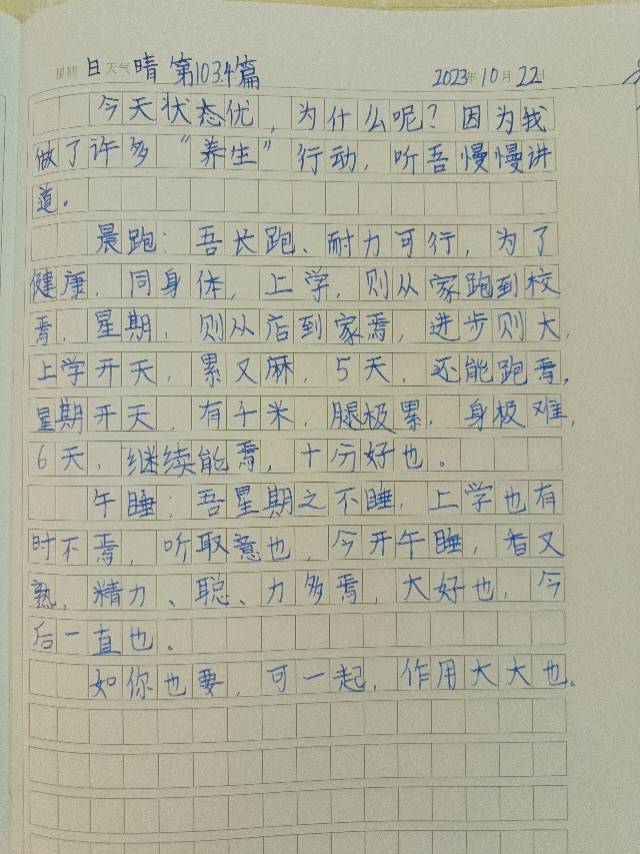 星期 日 天气 晴 第1034篇 2023年10月22日
今天状态优，为什么呢？因为我
做了许多“养生”行动，听吾慢慢讲
道。
晨跑：吾长跑、耐力可行，为了
健康，同身体，上学，则从家跑到校
焉，星期，则从店到家焉，进步则大，
上学开天，累又麻，5天，还能跑焉，
星期开天，有千米，腿极累，身极难，
6天，继续能焉，十分好也。
午睡：吾星期之不睡，上学也有
时不焉，听取意也，今开午睡，香又
熟，精力、聪、力多焉，大好也，今
后一直也。
如你也要，可一起，作用大大也。